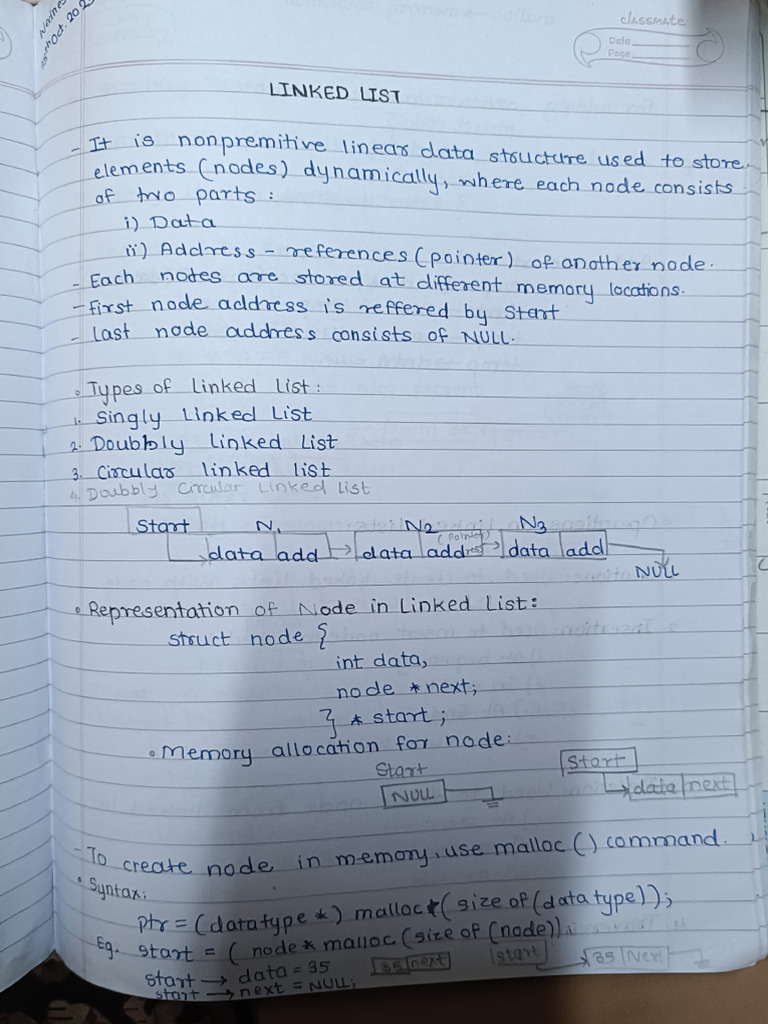 Oct. 202
classmate
Date
Page
LINKED LIST
- It is nonpremitive linear data structure used to store
elements (nodes) dynamically, where each node consists
of two parts :
i) Data
ii) Address - references (pointer) of another node.
- Each nodes are stored at different memory locations.
- First node address is reffered by Start
- last node address consists of NULL.
• Types of linked list :
1. Singly Linked List
2. Doubbly linked list
3. Circular linked list
4. Doubbly Circular Linked list
Start N1 N2 N3
(pointer)
data add data address data add
NULL
• Representation of Node in Linked List:
struct node {
int data,
node *next;
} * start ;
• Memory allocation for node:
Start Start
NULL data next
- To create node in memory, use malloc () command.
• Syntax:
ptr = (datatype *) malloc (size of (data type));
Eg. start = ( node * malloc (size of (node));
start → data = 35 35 next start 35 Next
start → next = NULL;